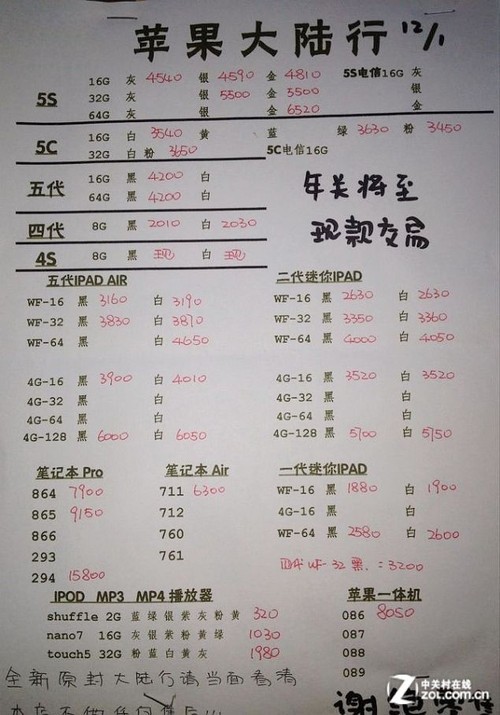 苹果大陆行 12/1
5S 16G 灰 4540 银 4590 金 4810 5S电信16G 灰
32G 灰 银 5500 金 5500 银
64G 灰 金 6520 金
5C 16G 白 3540 黄 蓝 绿 3630 粉 3450
32G 白 粉 3650 5C电信16G
五代 16G 黑 4200 白
64G 黑 4200 白
四代 8G 黑 2010 白 2030
4S 8G 黑 现 白 现
年关将至
现款交易
五代IPAD AIR
WF-16 黑 3160 白 3190
WF-32 黑 3830 白 3870
WF-64 黑 白 4650
4G-16 黑 3900 白 4010
4G-32 黑 白
4G-64 黑 白
4G-128 黑 6000 白 6050
二代迷你IPAD
WF-16 黑 2630 白 2630
WF-32 黑 3350 白 3360
WF-64 黑 4000 白 4050
4G-16 黑 3520 白 3520
4G-32 黑 白
4G-64 黑 白
4G-128 黑 5700 白 5750
笔记本 Pro
864 7900
865 9150
866
293
294 15800
笔记本 Air
711 6300
712
760
761
一代迷你IPAD
WF-16 黑 1880 白 1900
4G-16 黑 白
WF-64 黑 2580 白 2600
四代 WF-32 黑:3200
IPOD MP3 MP4 播放器
shuffle 2G 蓝 绿 银 紫 灰 粉 黄 320
nano7 16G 灰 银 紫 粉 黄 绿 1030
touch5 32G 粉 蓝 白 黄 灰 1980
苹果一体机
086 8050
087
088
089
全新原封大陆行请当面看清
本店不做任何售后!!!
谢
中关村在线
zol.com.cn